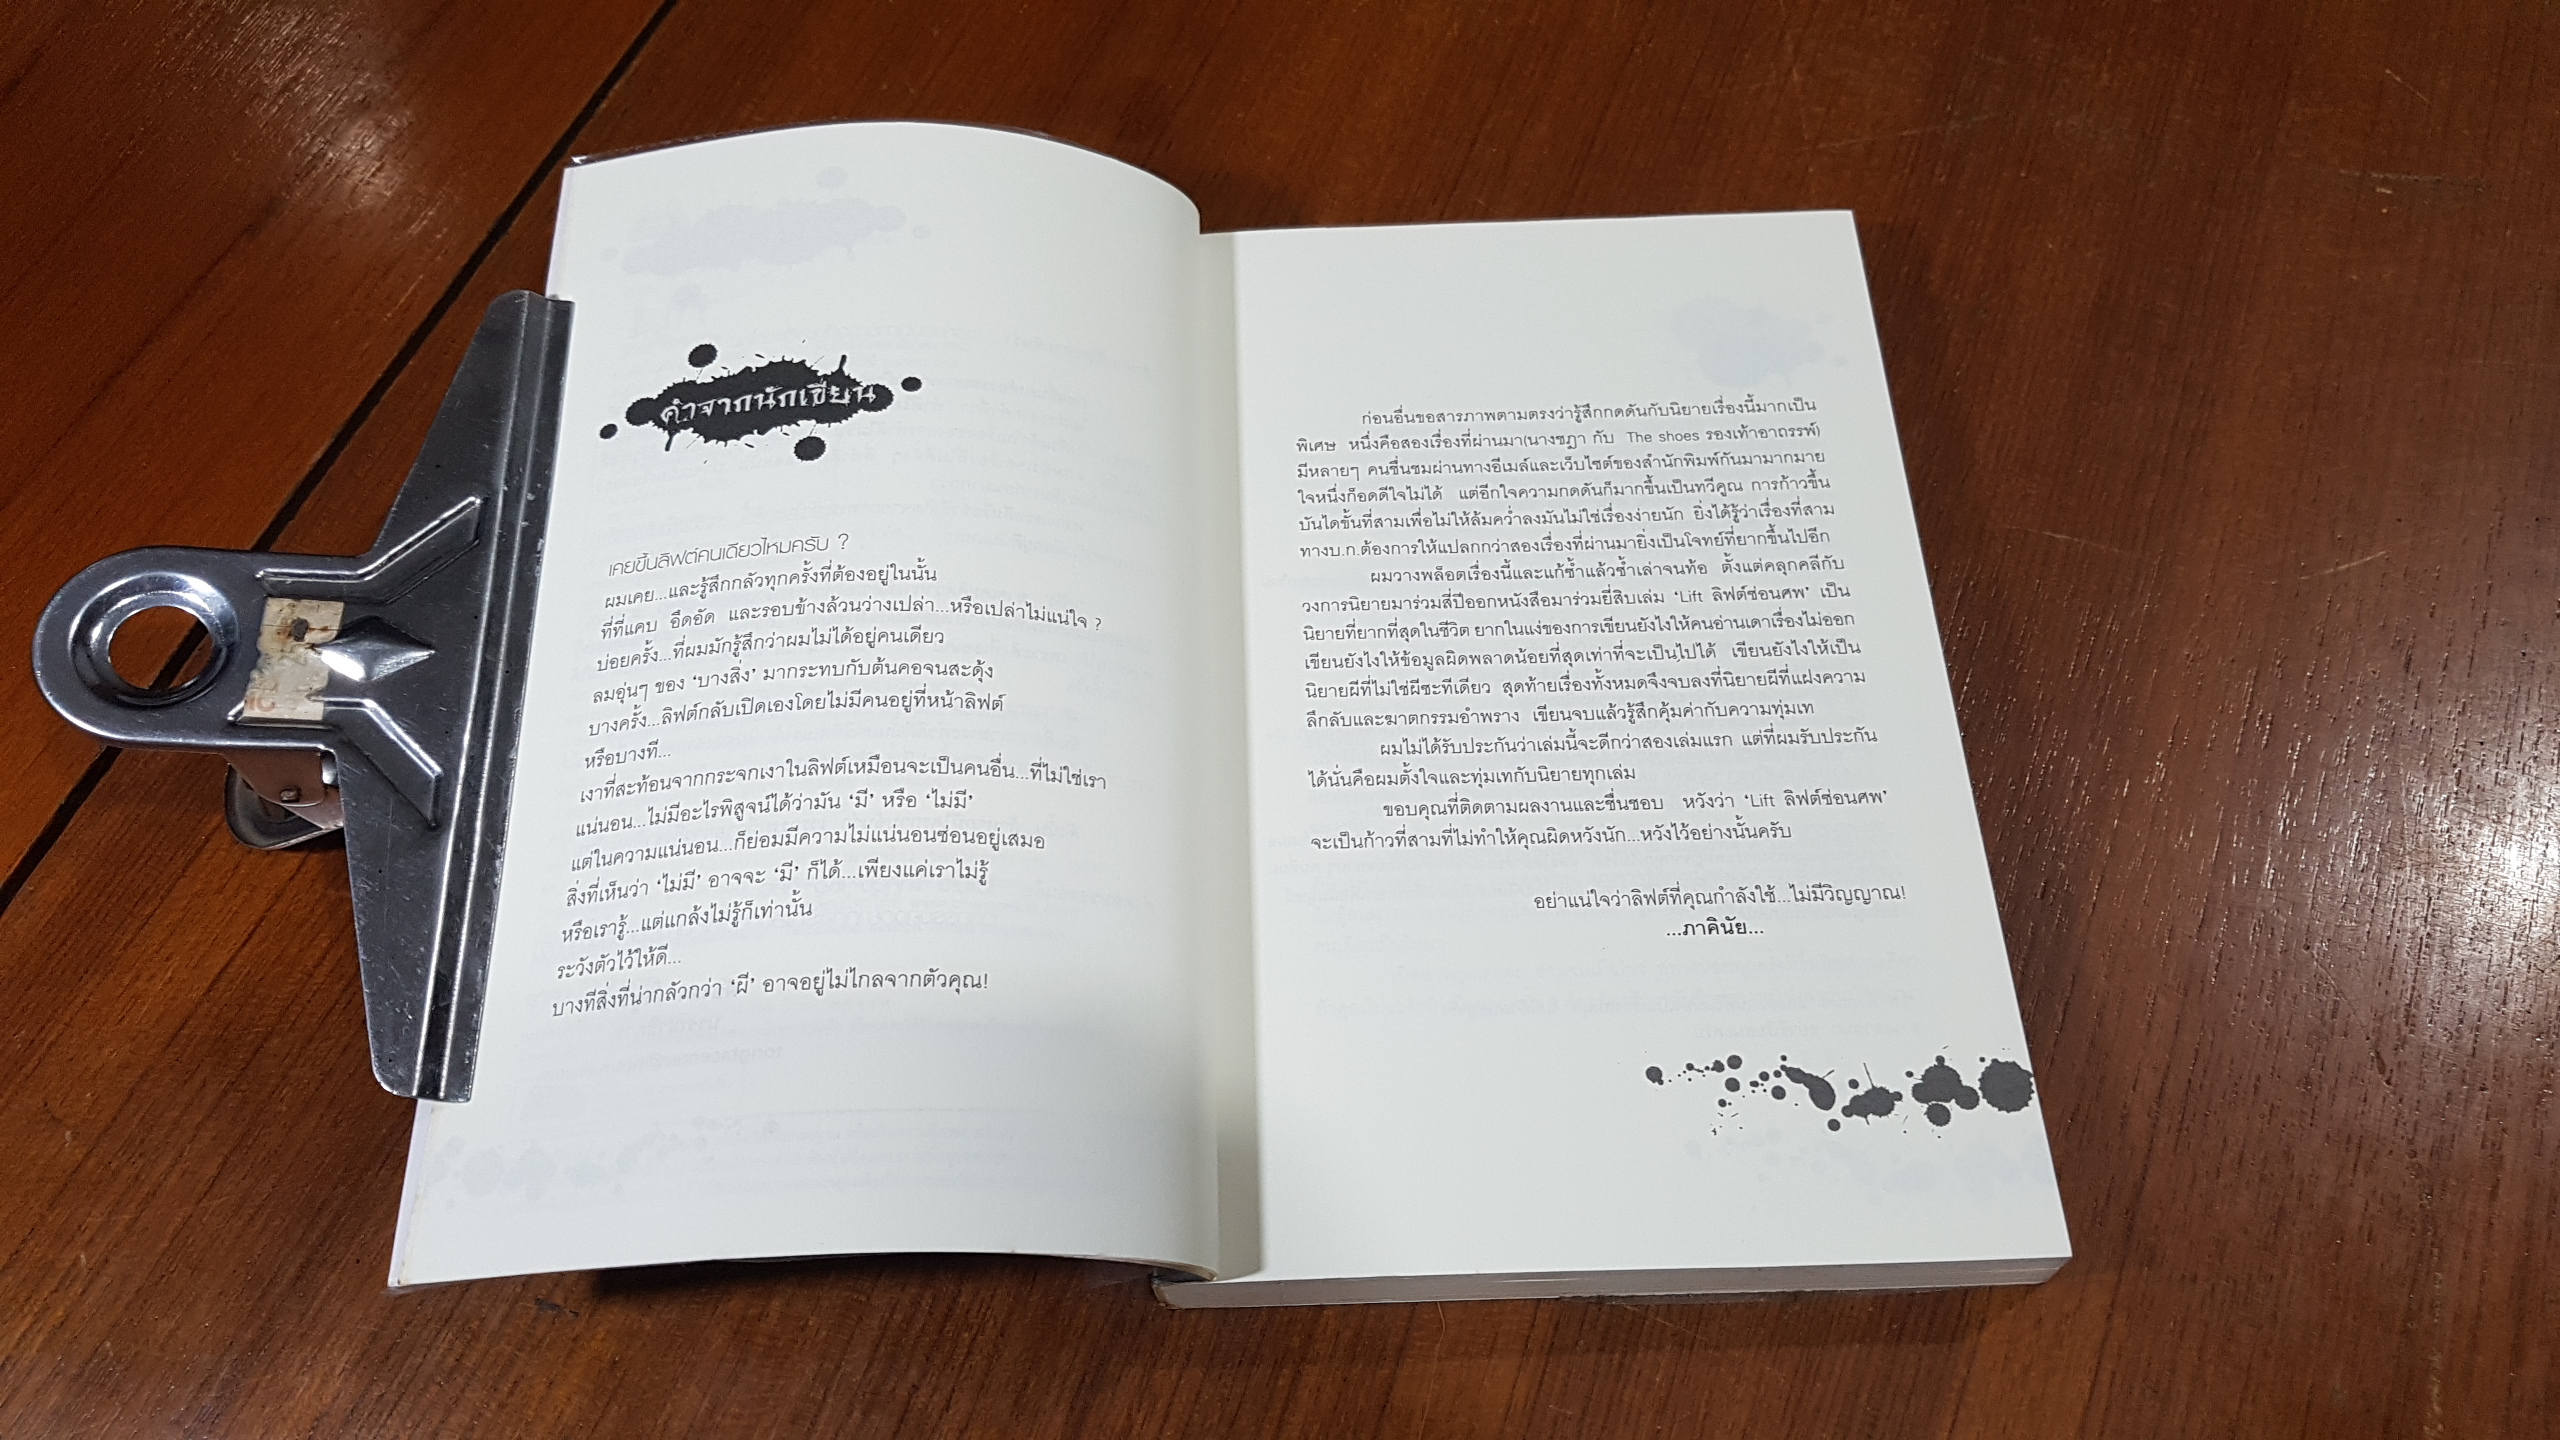 คำจากนักเขียน
เคยขึ้นลิฟต์คนเดียวไหมครับ ?
ผมเคย...และรู้สึกกลัวทุกครั้งที่ต้องอยู่ในนั้น
ที่ที่แคบ อึดอัด และรอบข้างล้วนว่างเปล่า...หรือเปล่าไม่แน่ใจ ?
บ่อยครั้ง...ที่ผมมักรู้สึกว่าผมไม่ได้อยู่คนเดียว
ลมอุ่นๆ ของ ‘บางสิ่ง’ มากระทบกับต้นคอจนสะดุ้ง
บางครั้ง...ลิฟต์กลับเปิดเองโดยไม่มีคนอยู่ที่หน้าลิฟต์
หรือบางที...
เงาที่สะท้อนจากกระจกเงาในลิฟต์เหมือนจะเป็นคนอื่น...ที่ไม่ใช่เรา
แน่นอน...ไม่มีอะไรพิสูจน์ได้ว่ามัน ‘มี’ หรือ ‘ไม่มี’
แต่ในความแน่นอน...ก็ย่อมมีความไม่แน่นอนซ่อนอยู่เสมอ
สิ่งที่เห็นว่า ‘ไม่มี’ อาจจะ ‘มี’ ก็ได้...เพียงแค่เราไม่รู้
หรือเรารู้...แต่แกล้งไม่รู้ก็เท่านั้น
ระวังตัวไว้ให้ดี...
บางทีสิ่งที่น่ากลัวกว่า ‘ผี’ อาจอยู่ไม่ไกลจากตัวคุณ!
ก่อนอื่นขอสารภาพตามตรงว่ารู้สึกกดดันกับนิยายเรื่องนี้มากเป็น
พิเศษ หนึ่งคือสองเรื่องที่ผ่านมา(นางชฎา กับ The shoes รองเท้าอาถรรพ์)
มีหลายๆ คนชื่นชมผ่านทางอีเมล์และเว็บไซต์ของสำนักพิมพ์กันมามากมาย
ใจหนึ่งก็อดดีใจไม่ได้ แต่อีกใจความกดดันก็มากขึ้นเป็นทวีคูณ การก้าวขึ้น
บันไดขั้นที่สามเพื่อไม่ให้ล้มคว่ำลงมันไม่ใช่เรื่องง่ายนัก ยิ่งได้รู้ว่าเรื่องที่สาม
ทางบ.ก.ต้องการให้แปลกกว่าสองเรื่องที่ผ่านมายิ่งเป็นโจทย์ที่ยากขึ้นไปอีก
ผมวางพล็อตเรื่องนี้และแก้ซ้ำแล้วซ้ำเล่าจนท้อ ตั้งแต่คลุกคลีกับ
วงการนิยายมาร่วมสี่ปีออกหนังสือมาร่วมยี่สิบเล่ม ‘Lift ลิฟต์ซ่อนศพ’ เป็น
นิยายที่ยากที่สุดในชีวิต ยากในแง่ของการเขียนยังไงให้คนอ่านเดาเรื่องไม่ออก
เขียนยังไงให้ข้อมูลผิดพลาดน้อยที่สุดเท่าที่จะเป็นไปได้ เขียนยังไงให้เป็น
นิยายผีที่ไม่ใช่ผีซะทีเดียว สุดท้ายเรื่องทั้งหมดจึงจบลงที่นิยายผีที่แฝงความ
ลึกลับและฆาตกรรมอำพราง เขียนจบแล้วรู้สึกคุ้มค่ากับความทุ่มเท
ผมไม่ได้รับประกันว่าเล่มนี้จะดีกว่าสองเล่มแรก แต่ที่ผมรับประกัน
ได้นั่นคือผมตั้งใจและทุ่มเทกับนิยายทุกเล่ม
ขอบคุณที่ติดตามผลงานและชื่นชอบ หวังว่า ‘Lift ลิฟต์ซ่อนศพ’
จะเป็นก้าวที่สามที่ไม่ทำให้คุณผิดหวังนัก...หวังไว้อย่างนั้นครับ
อย่าแน่ใจว่าลิฟต์ที่คุณกำลังใช้...ไม่มีวิญญาณ!
...ภาคินัย...